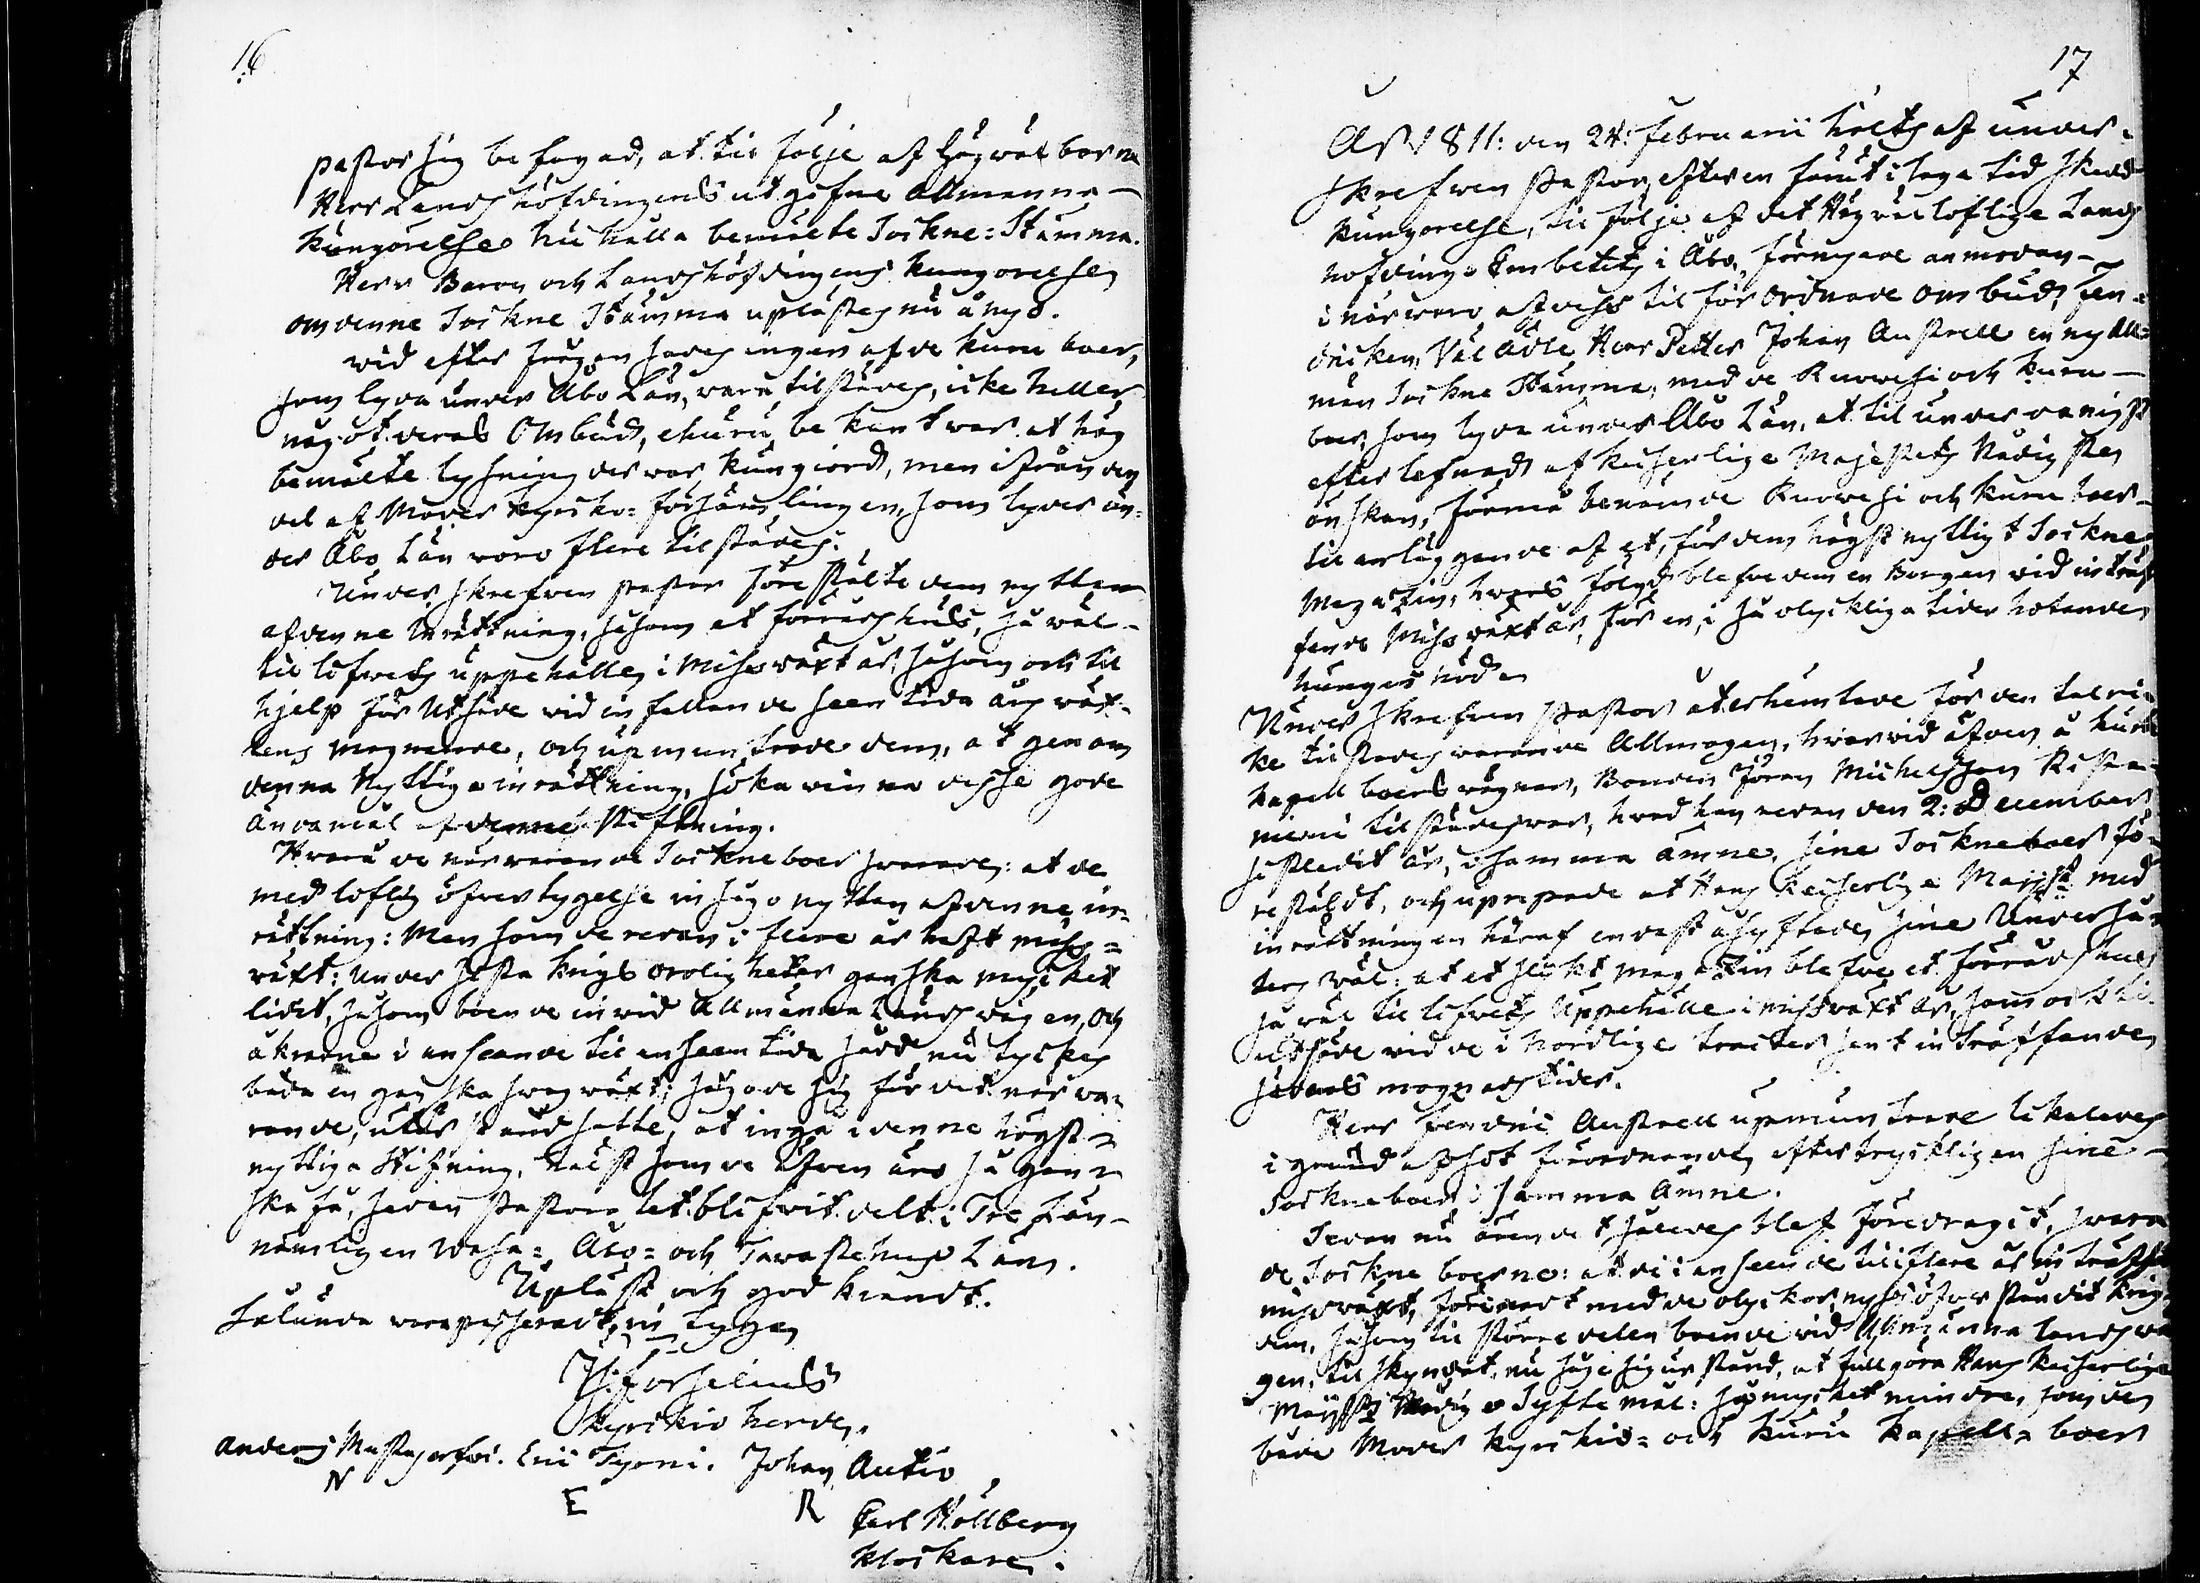 16
pastor sig befogad, at til följe af Högwälborne
Herr Landshöfdingens utgifne Allmänna
kungörelse nu hålla bemälte Sockne=Stämma.
Herr Baron och Landshöfdingens kungörelse
om denne Sockne Stämma uplästes nu å nyo.
wid efter frågan fans ingen af de Kuru boer,
som lyda under Åbo Län, wara tilstädes, icke heller
något deras Ombud, ehuru bekant war at hög
bemälte lysning der war kungiord, men ifrån den
del af Moder kyrko=församlingen, som lyder un=
der Åbo Län woro flere tilstädes.
Under skrefwen pastor förestälte dem nyttan
af denne inrättning, såsom et förrådshus, så wäl
til lifwets uppehälle i Missväxt år, såsom och til
hjelp för utsäde wid infallande seen tida årswäx=
tens mognande, och upmuntrade dem, at genom
denna Nyttiga inrättning, söka winna desse gode
ändamål af denne stiftning.
Hwarå de närwarande Sockneboer swarade: at de
med loflig öfwertygelse insågo nyttan af denne in=
rättning: Men som de redan i flere år haft miss=
wäxt: under sista krigs oroligheter ganska mycket
lidit, såsom boende in wid Allmänna Landswägen, och
åkrarne i anseende til en seen tida sådd nu tyckes
båda en ganska swag wäxt; sågo de sig för det närwa=
rande, utur stånd satte, at ingå i denne högst
nyttiga Stiftning, hälst som de äfwen äro så gan=
ska få, sedan Pastoratet blifwit delt i Tre Län
nämligen Wasa= Åbo= och Tawastehus Läns.
Upläst och godkiendt.
Sålunda wara passeradt, in tygar
J: Forselius
Kyrckio herde.
Anders Mustajärfwi. Eric Tyrni. Johan Autio
N E R
Carl Hällberg
klockare.
17
Åhr 1811: den 24: Februarii höltz af under=
skrefwen Pastor, efter en förut i laga tid skedd
kungörelse, til följe af det Högwälloflige Lands
höfdinge Embetets i Åbo, förnyade anmodan
i närwaro af dess til förordnade ombud, Fen=
dricken Wäl Ädle Herr Petter Johan Austrell en ny All=
män Sockne Stämma, med de Ruowesi och Kuru
boer, som lyda under Åbo Län, at til underdånigst
efterlefnad af Kejserlige Majestets Nådigste
önskan, förmå benämde Ruowesi och Kuru boer
til anläggande af et, för dem högst nyttigt Sockne
Magazin, hwars följd blefwe dem en Borgen wid inträf
fande Missväxt år, för en, i så olyckliga tider hotande
hungers nöd.
Under skrefwen Pastor återhämtade för den talri=
ke tilstädes warande Allmogen, hwarwid äfwen å Kuru
kapell boers wägnar, Bonden Jöran Michelsson Rista
niemi tilstädes war, hwad han redan den 2: December
sistledit år, i samma ämne, sine Sockneboer fö=
restäldt, och uprepade at Hans Keiserlige Maj:st med
inrättningen häraf endast åsyftades sine Underså=
ters wäl: at et slikt magazin blefwe et förrådshus
så wäl til lifwets Uppehälle i missväxt år, som och til
utsäde wid de i Nordlige tracter sent inträffande
sädens mognads tider.
Herr Fendric Austrell upmuntrade likaledes
i grund af sit förordnande, eftertryckligen sine
Sockneboer i samma ämne.
Sedan nu ärendet således blef föredragit, swara
de Sockne boerne: at de i anseende til i flere år inträffad
missväxt, förenadt med de olyckor, nyss öfwerståndit krig
dem, såsom til större delen boende wid Allmänna landswä
gen, tilskyndat, nu såge sig ur stånd, at fullgöra Hans Keiserlige
Maj:sts Nådige Syftemål: så mycket mindre, som de
både Moder kyrckio= och Kuru Kapell= boer